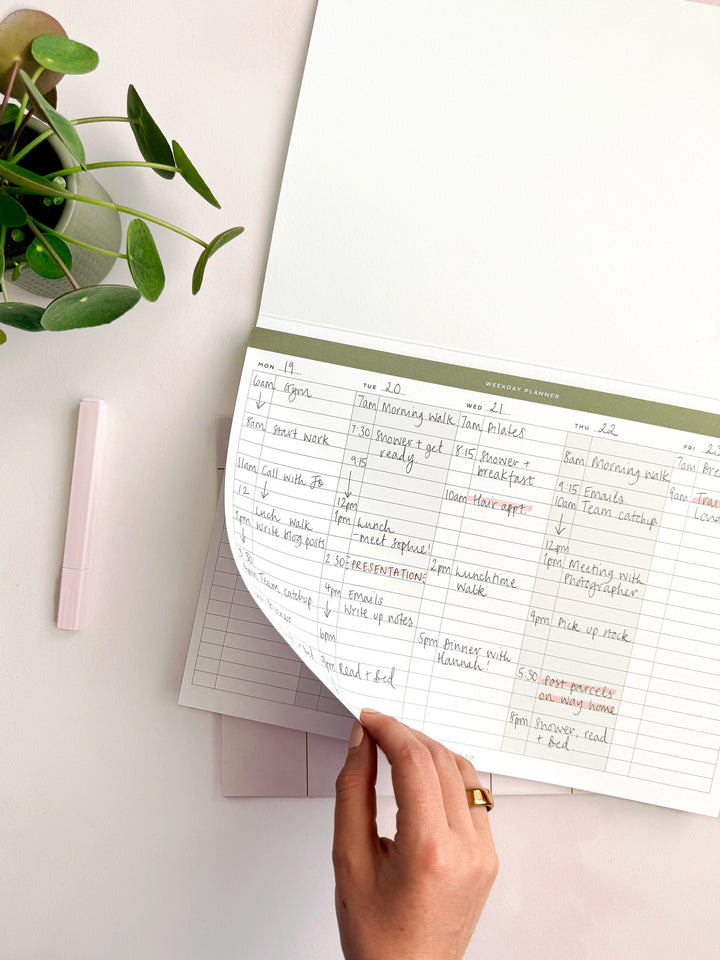 WEEKDAY PLANNER
MON 19
6am Gym
8am Start work
11am Call with Jo
12
1pm Lunch walk
Write blog posts
3.30
Team catchup
TUE 20
7am Morning Walk
7:30 Shower + get
ready
9:15
12pm
1pm Lunch
-meet Sophie!
2:30 PRESENTATION
4pm Emails
Write up notes
6pm
9pm Read + Bed
WED 21
7am Pilates
8:15 Shower +
breakfast
10am Hair appt.
2pm Lunchtime
Walk
5pm Dinner with
Hannah!
THU 22
8am Morning Walk
9:15 Emails
10am Team catchup
12pm
1pm Meeting with
Photographer
9pm Pick up stock
5:30 Post parcels
on way home
8pm Shower, read
+ Bed
FRI 23
7am Bre
9am Trai
Lon